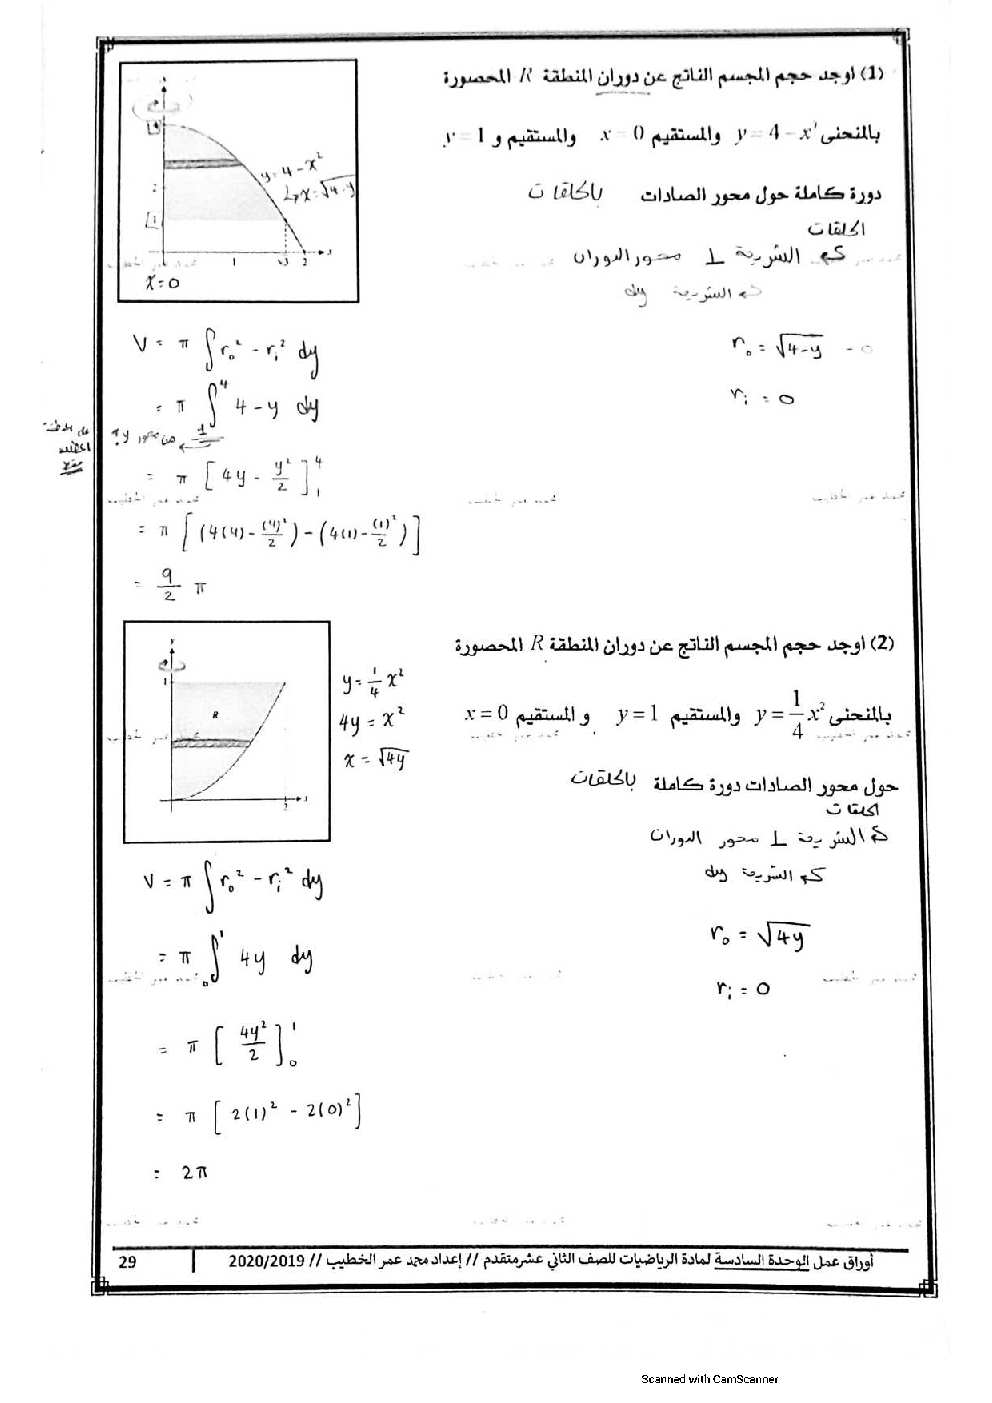 (1) اوجد حجم المجسم الناتج عن دوران المنطقة R المحصورة
بالمنحنى y = 4 - x² والمستقيم x = 0 والمستقيم و y = 1
دورة كاملة حول محور الصادات بالحلقات
الحلقات
كم الشريحة ⊥ محور الدوران
كم الشريحة dy
4
y = 4 - x²
x = √4-y
1
1 √3 2 x
x = 0
r₀ = √4-y - 0
rᵢ = 0
V = π ∫ r₀² - rᵢ² dy
= π ∫⁴ 4 - y dy
1
من محور y؟
= π [4y - y²/2]₁⁴
= π [(4(4) - (4)²/2) - (4(1) - (1)²/2)]
= 9/2 π
(2) اوجد حجم المجسم الناتج عن دوران المنطقة R المحصورة
بالمنحنى y = 1/4 x² والمستقيم y = 1 و المستقيم x = 0
حول محور الصادات دورة كاملة بالحلقات
الحلقات
كم الشريحة ⊥ محور الدوران
كم الشريحة dy
y
1
R
2 x
y = 1/4 x²
4y = x²
x = √4y
r₀ = √4y
rᵢ = 0
V = π ∫ r₀² - rᵢ² dy
= π ₀∫¹ 4y dy
= π [4y²/2]₀¹
= π [2(1)² - 2(0)²]
= 2π
محمد عمر الخطيب
أوراق عمل الوحدة السادسة لمادة الرياضيات للصف الثاني عشر متقدم // إعداد محمد عمر الخطيب // 2020/2019 29
Scanned with CamScanner